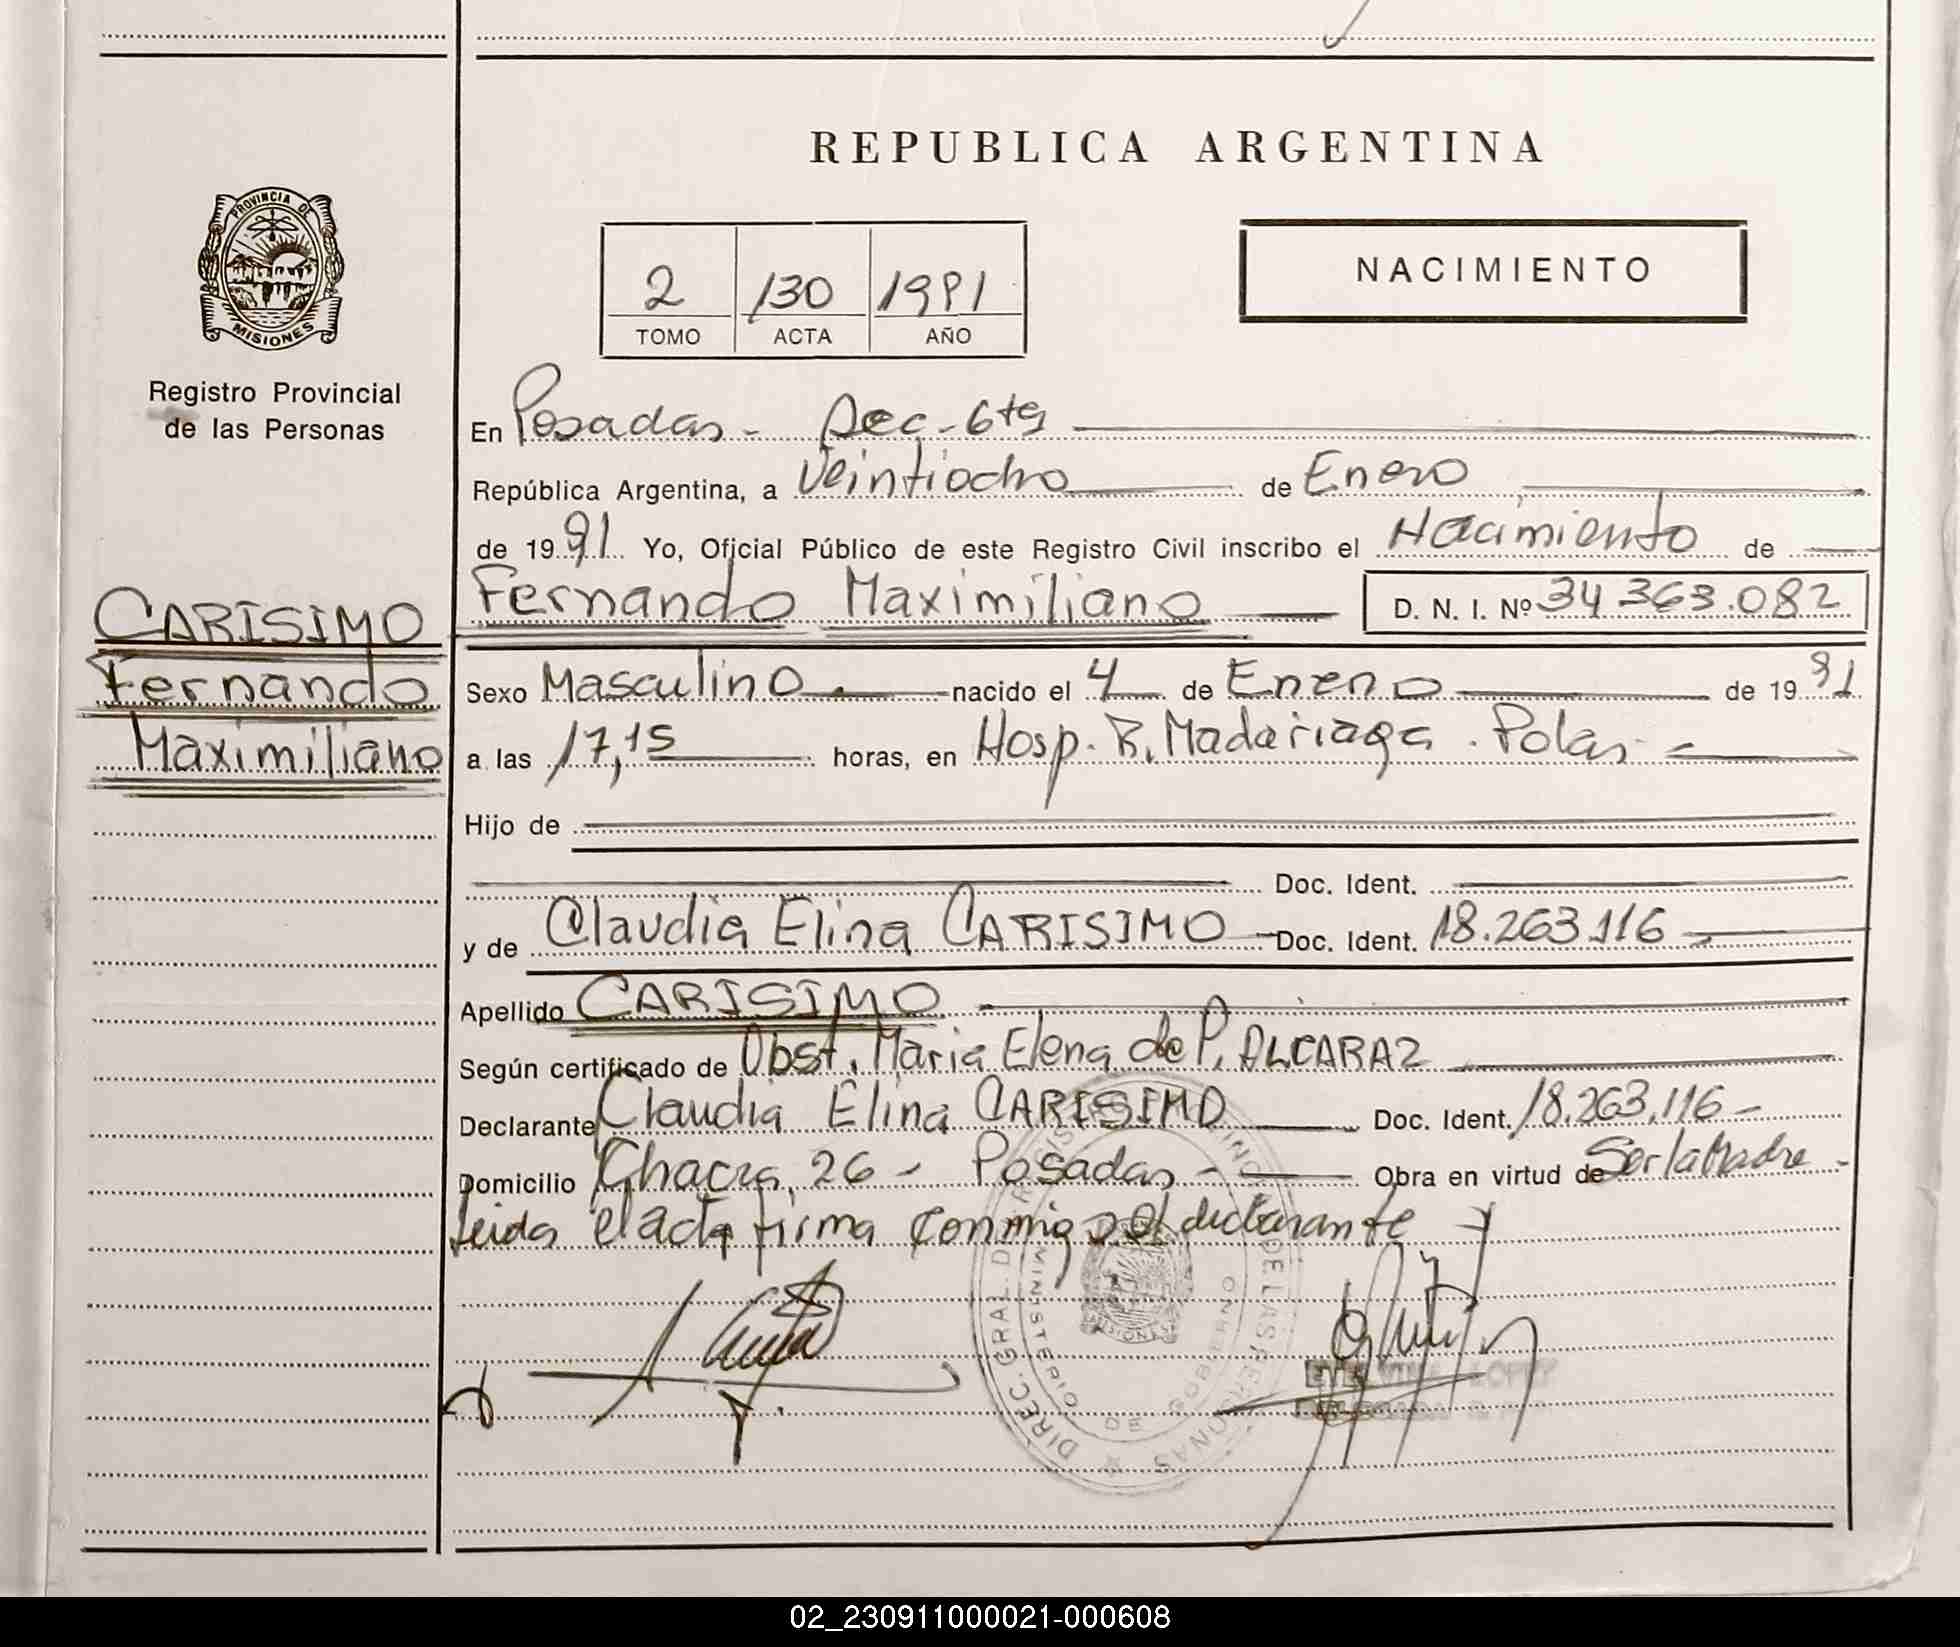 REPUBLICA ARGENTINA
PROVINCIA DE
MISIONES
Registro Provincial
de las Personas
2 130 1991
TOMO ACTA AÑO
NACIMIENTO
En Posadas - Sec - 6ta
República Argentina, a Veintiocho de Enero
de 1991 Yo, Oficial Público de este Registro Civil inscribo el Nacimiento de
CARISIMO
Fernando
Maximiliano
Fernando Maximiliano D. N. I. Nº 34 363.082
Sexo Masculino nacido el 4 de Enero de 1991
a las 17,15 horas, en Hosp. R. Madariaga. Pdas
Hijo de
Doc. Ident.
y de Claudia Elina CARISIMO Doc. Ident. 18.263.116
Apellido CARISIMO
Según certificado de Obst. Maria Elena de P. ALCARAZ
Declarante Claudia Elina CARISIMO Doc. Ident. 18.263.116 -
Domicilio Chacra 26 - Posadas - Obra en virtud de Ser la Madre -
Leida el acta firma conmigo el declarante
DIREC. GRAL. DE LAS PERSONAS
MINISTERIO DE GOBIERNO
MISIONES
LOPEZ
02_230911000021-000608